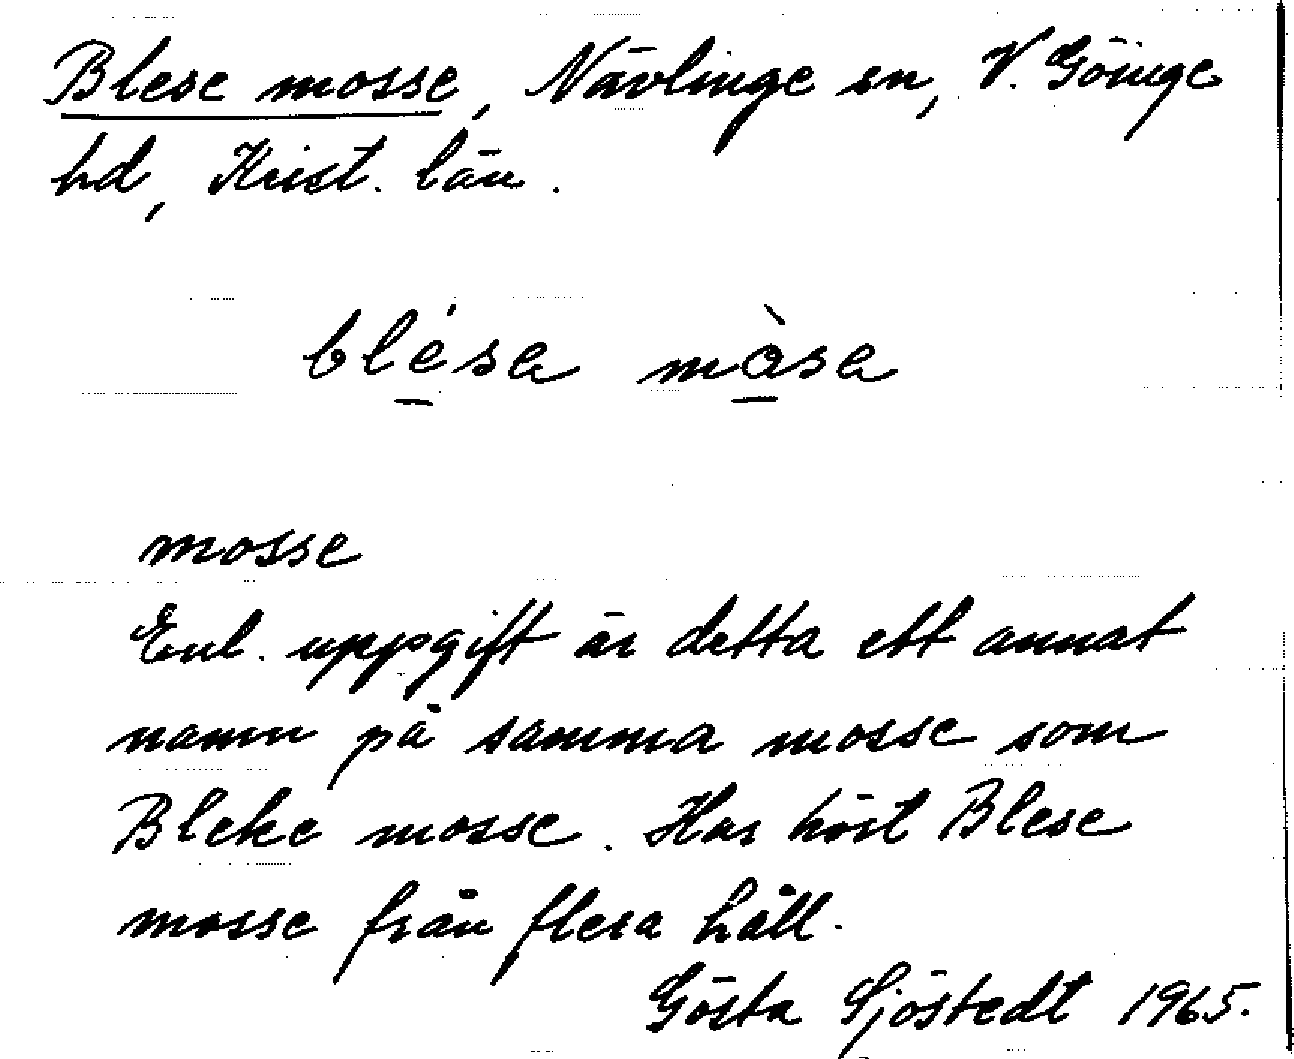 Blese mosse, Nävlinge sn, V. Göinge
hd, Krist. län.
blésa màsa
mosse
Enl. uppgift är detta ett annat
namn på samma mosse som
Bleke mosse. Har hört Blese
mosse från flera håll.
Gösta Sjöstedt 1965.